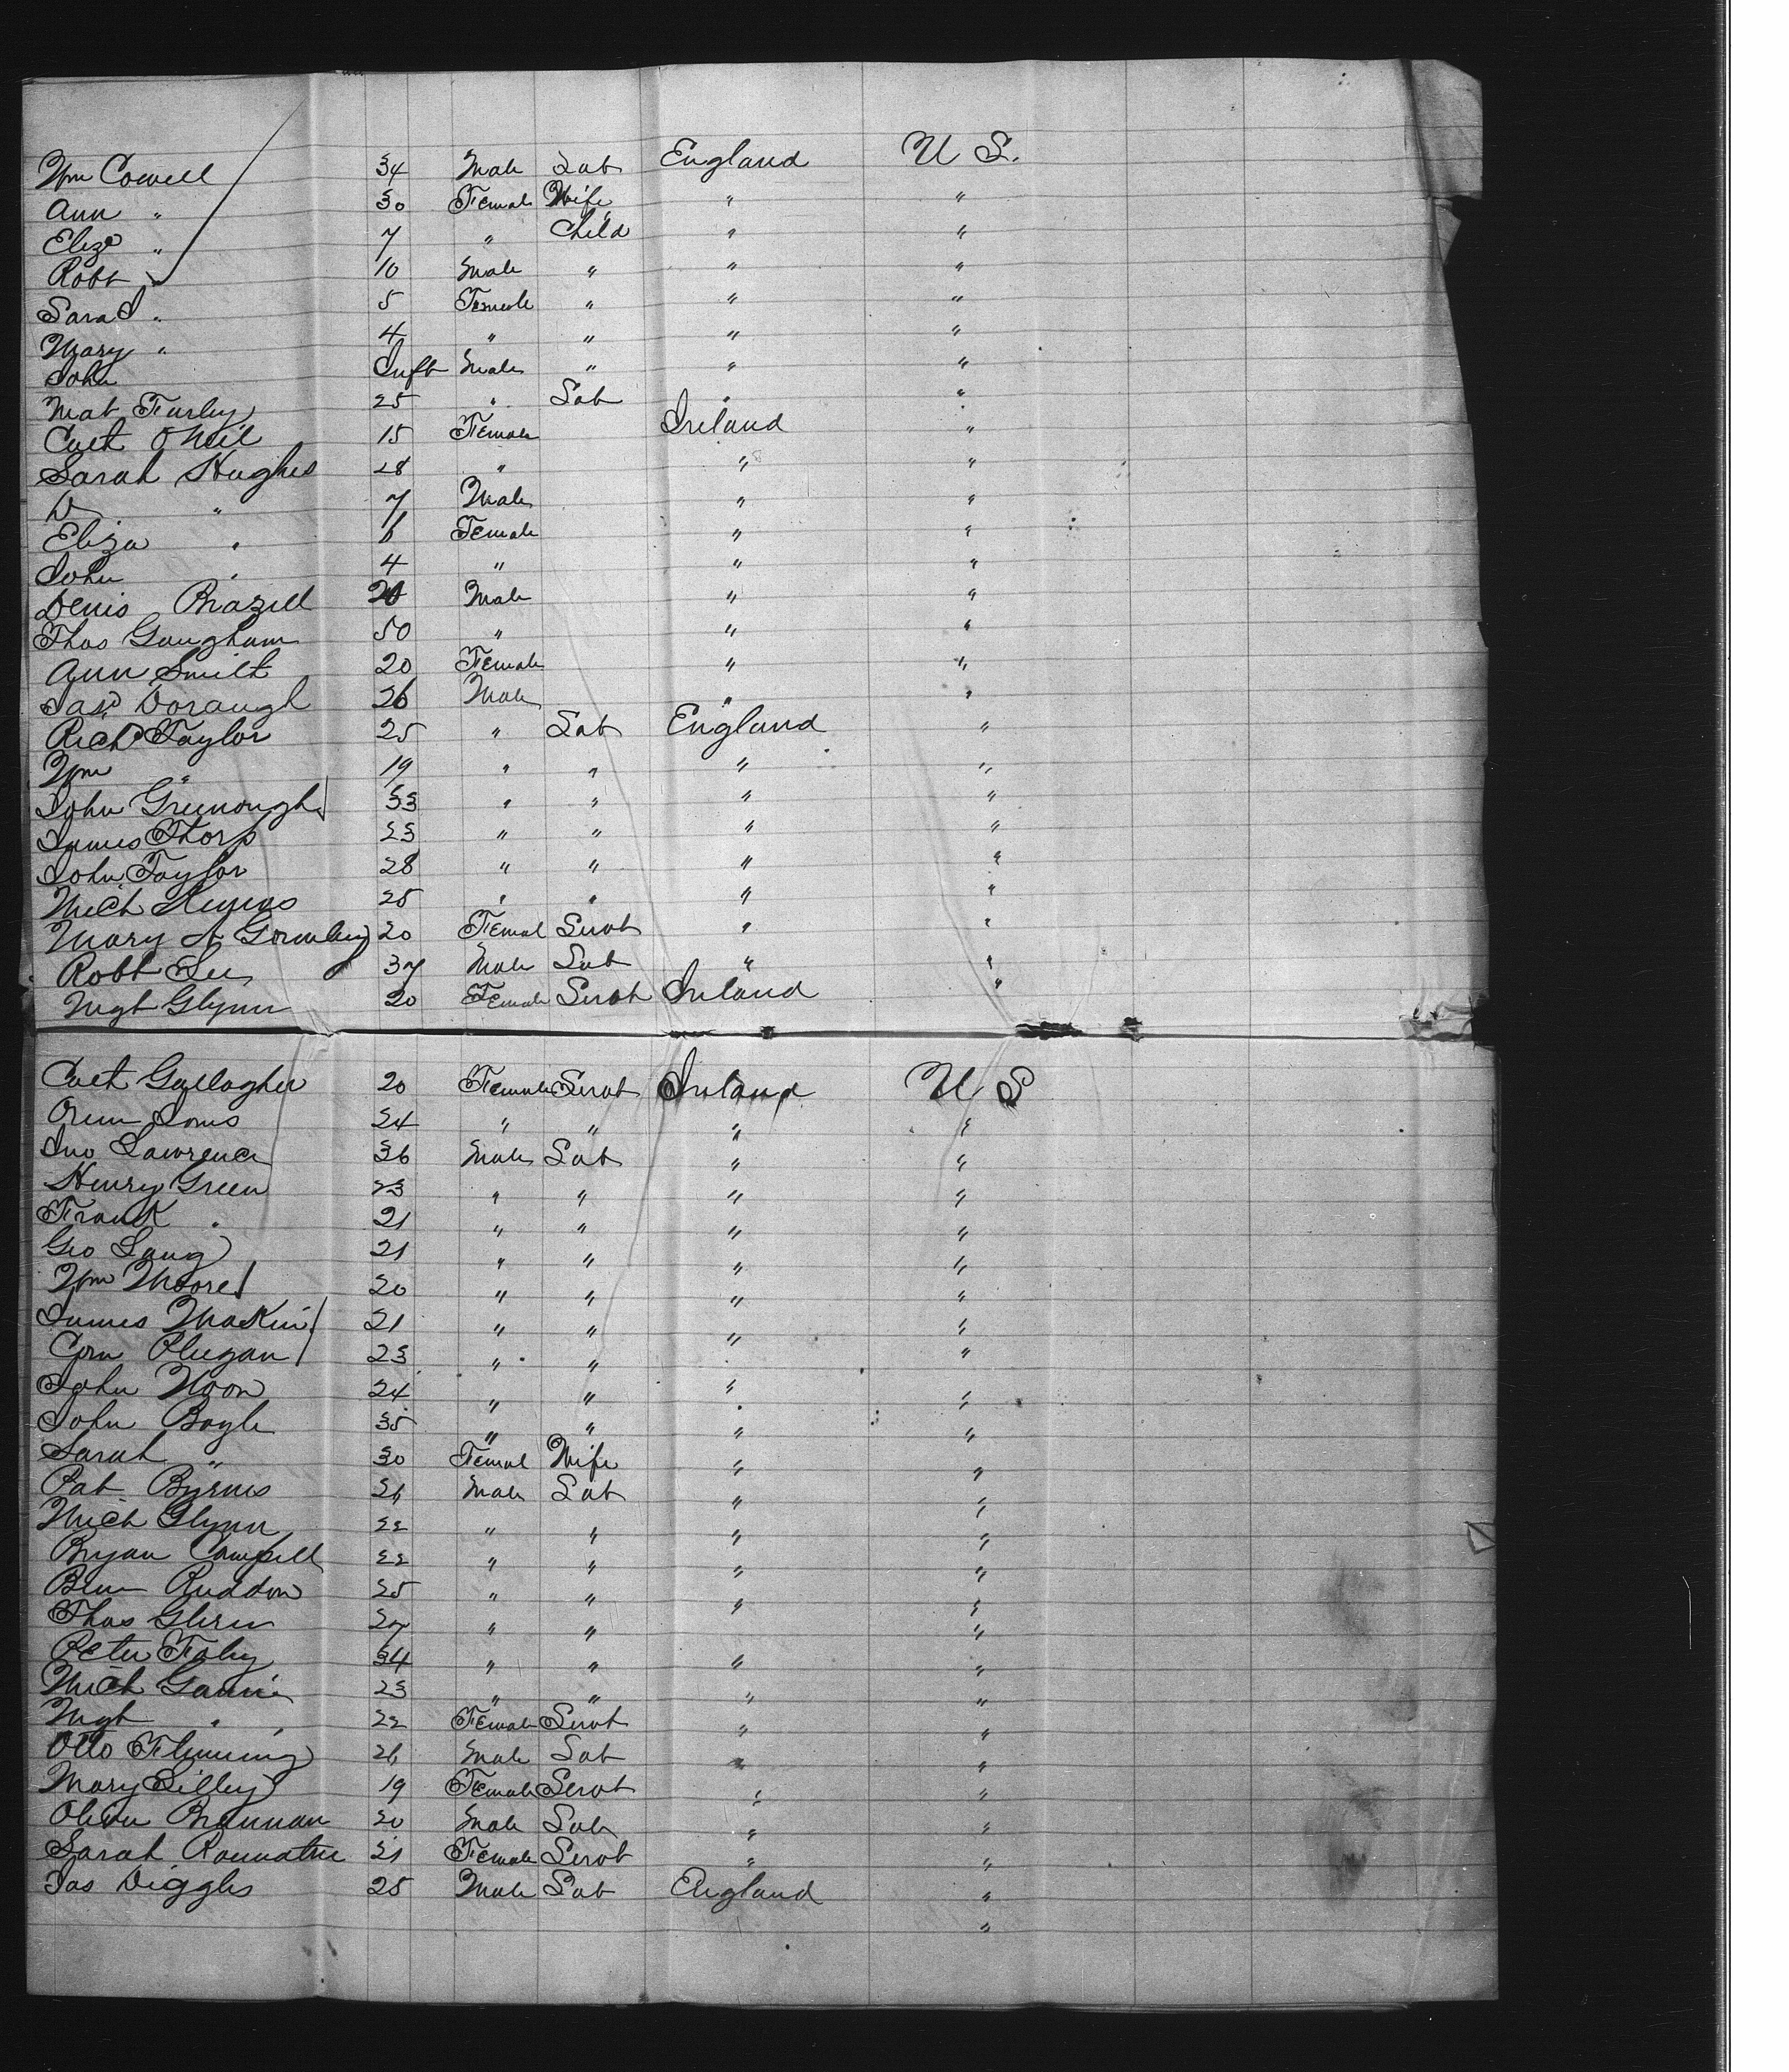 Wm Cowell 34 Male Lab England U S.
Ann " 30 Female Wife " "
Eliza " 7 " Child " "
Robt " 10 Male " " "
Sarah " 5 Female " " "
Mary " 4 " " " "
John Inft Male " " "
Mat Farley 25 " Lab " "
Cath O Neil 15 Female Ireland "
Sarah Hughes 28 " " "
D " 7 Male " "
Eliza " 6 Female " "
John " 4 " " "
Denis Brazell 20 Male " "
Thos Gaugham 50 " " "
Ann Smith 20 Female " "
Jas Doraugh 26 Male " "
Richd Taylor 25 " Lab England "
Wm " 19 " " " "
John Greenough 33 " " " "
James Thorp 23 " " " "
John Taylor 28 " " " "
Mich 25 " " " "
Mary A Gormley 20 Femal Servt " "
Robt Lee 37 Male Lab " "
Mgt Glynn 20 Female Servt Ireland "
Cath Gallagher 20 Female Servt Ireland U S
24 " " " "
Jno Lawrence 36 Male Lab " "
Henry Green 23 " " " "
Frank " 21 " " " "
Geo Lang 21 " " " "
Wm Moore 20 " " " "
James Makin 21 " " " "
Corn 23 " " "
John Noon 24 " " " "
John Boyle 35 " " " "
Sarah " 30 Femal Wife " "
Pat Byrnes 26 Male Lab " "
Mich Glynn 22 " " " "
Bryan Campell 22 " " " "
Ruddon 25 " " " "
Thos 27 " " "
Peter Foley 34 " " " "
Mich 23 " " " "
Mgt " 22 Female Servt " "
Otto Flemming 26 Male Lab " "
Mary Lilley 19 Female Servt " "
Oliver Brannan 20 Male Lab " "
Sarah 21 Female Servt " "
Jas Diggles 25 Male Lab England "
"